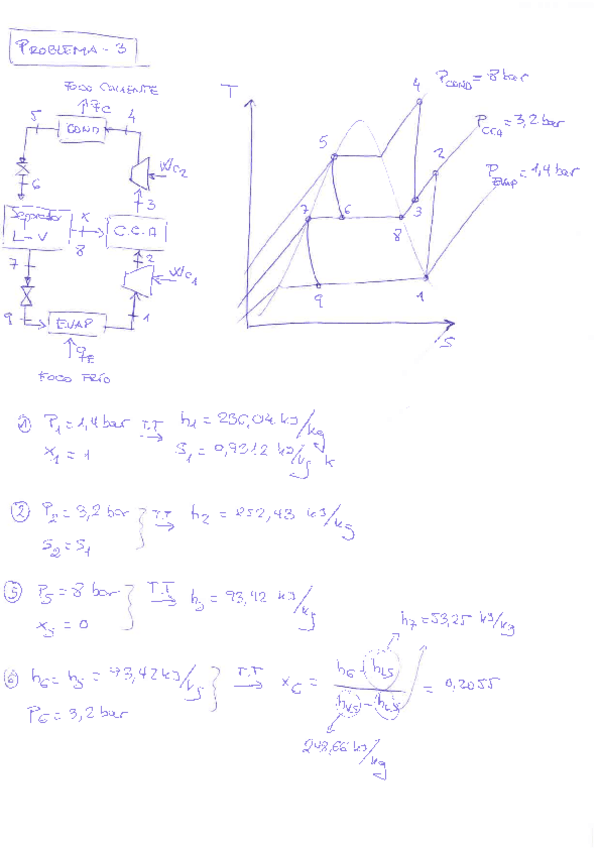 PROBLEMA - 3
FOCO CALIENTE
qc
5
4
COND
Wc2
6
3
Separador
L-V
X
8
C.C.A
7
2
Wc1
9
EVAP
1
qE
FOCO FRÍO
T
4
PCOND = 8 bar
PCCA = 3,2 bar
5
2
PEvap = 1,4 bar
7
6
8
3
9
1
S
① P1 = 1,4 bar T.T → h1 = 236,04 kJ/kg
x1 = 1
S1 = 0,9312 kJ/kg K
② P2 = 3,2 bar } T.T → h2 = 252,43 kJ/kg
S2 = S1
⑤ P5 = 8 bar } T.T → h5 = 93,42 kJ/kg
x5 = 0
h7 = 53,25 kJ/kg
⑥ h6 = h5 = 93,42 kJ/kg } T.T → x6 = (h6 - hLS) / (hVS - hLS) = 0,2055
P6 = 3,2 bar
248,66 kJ/kg